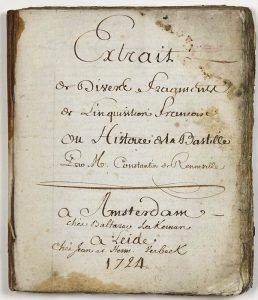 Extrait
de Divers Fragments
de L'inquisition Francoise
ou Histoire de la Bastille
Par M. Constantin de Renneville
a Amsterdam
chés Baltazar Lakeman
a Leide
chés Jean et Herm. Verbeek
1724